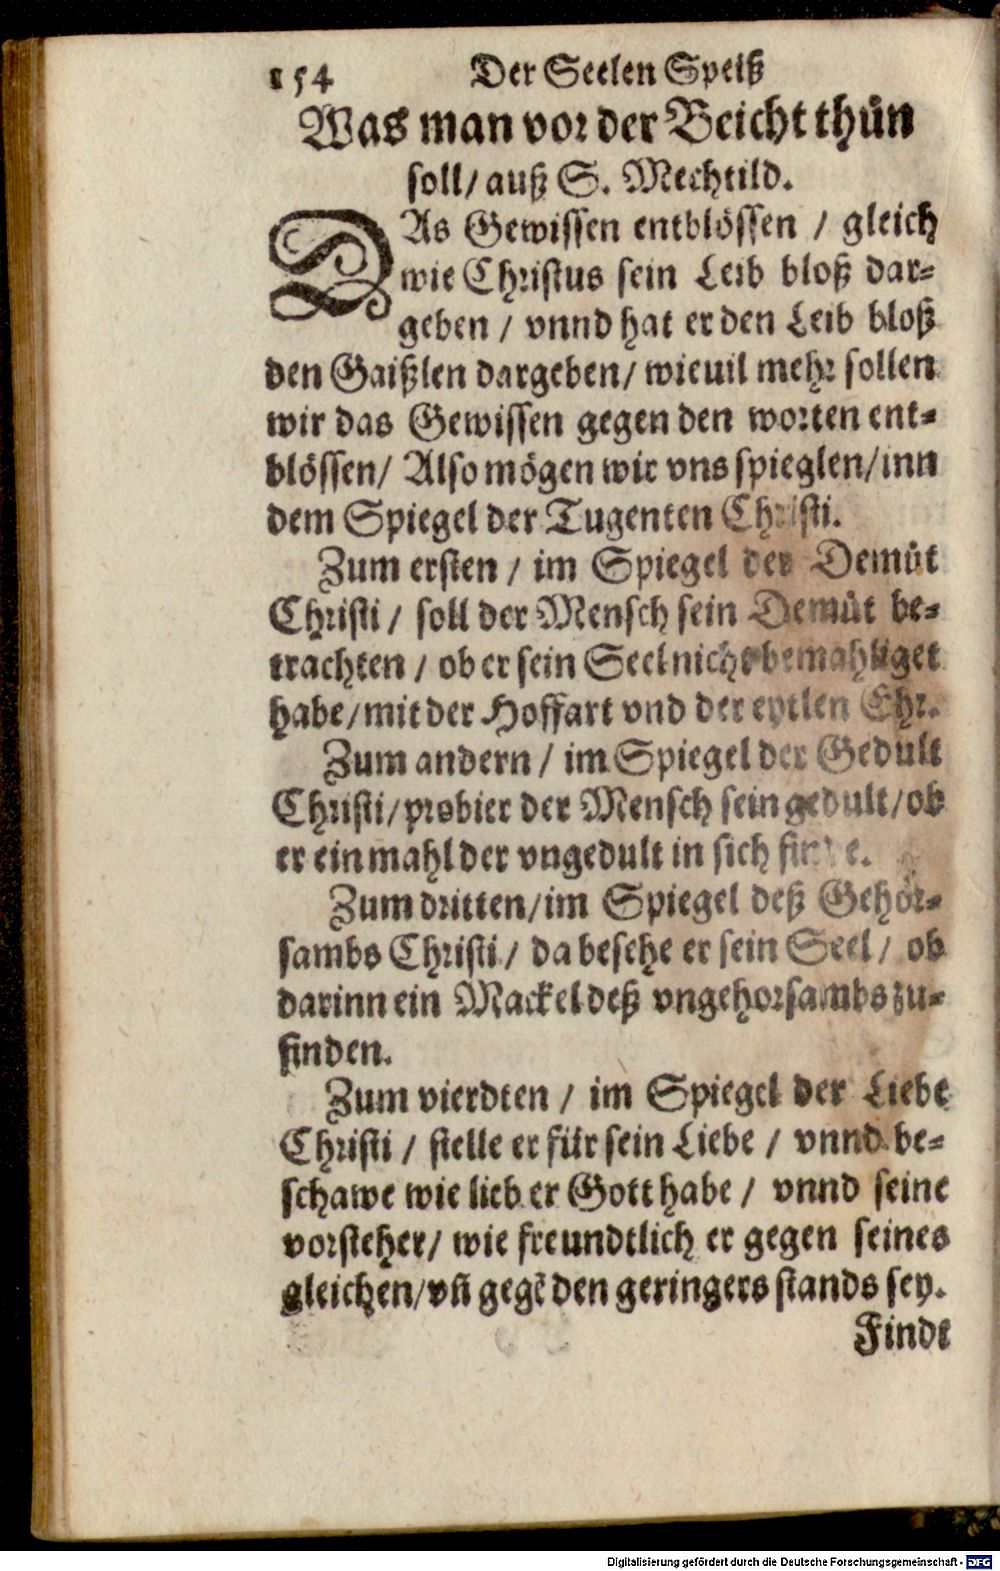 154 Der Seelen Speiß
Was man vor der Beicht thůn
soll/ auß S. Mechtild.
DAs Gewissen entblössen / gleich
wie Christus sein Leib bloß dar=
geben / vnnd hat er den Leib bloß
den Gaißlen dargeben/ wieuil mehr sollen
wir das Gewissen gegen den worten ent=
blössen/ Also mögen wir vns spieglen/ inn
dem Spiegel der Tugenten Christi.
Zum ersten / im Spiegel der Demůt
Christi / soll der Mensch sein Demůt be=
trachten / ob er sein Seel nicht bemahliget
habe/ mit der Hoffart vnd der eytlen Ehr.
Zum andern / im Spiegel der Gedult
Christi/ probier der Mensch sein gedult/ ob
er ein mahl der vngedult in sich finde.
Zum dritten/ im Spiegel deß Gehor=
sambs Christi / da besehe er sein Seel / ob
darinn ein Mackel deß vngehorsambs zu=
finden.
Zum vierdten / im Spiegel der Liebe
Christi / stelle er für sein Liebe / vnnd be=
schawe wie lieb er Gott habe / vnnd seine
vorsteher/ wie freundtlich er gegen seines
gleichen/ vñ gegē den geringers stands sey.
Findt
Digitalisierung gefördert durch die Deutsche Forschungsgemeinschaft - DFG